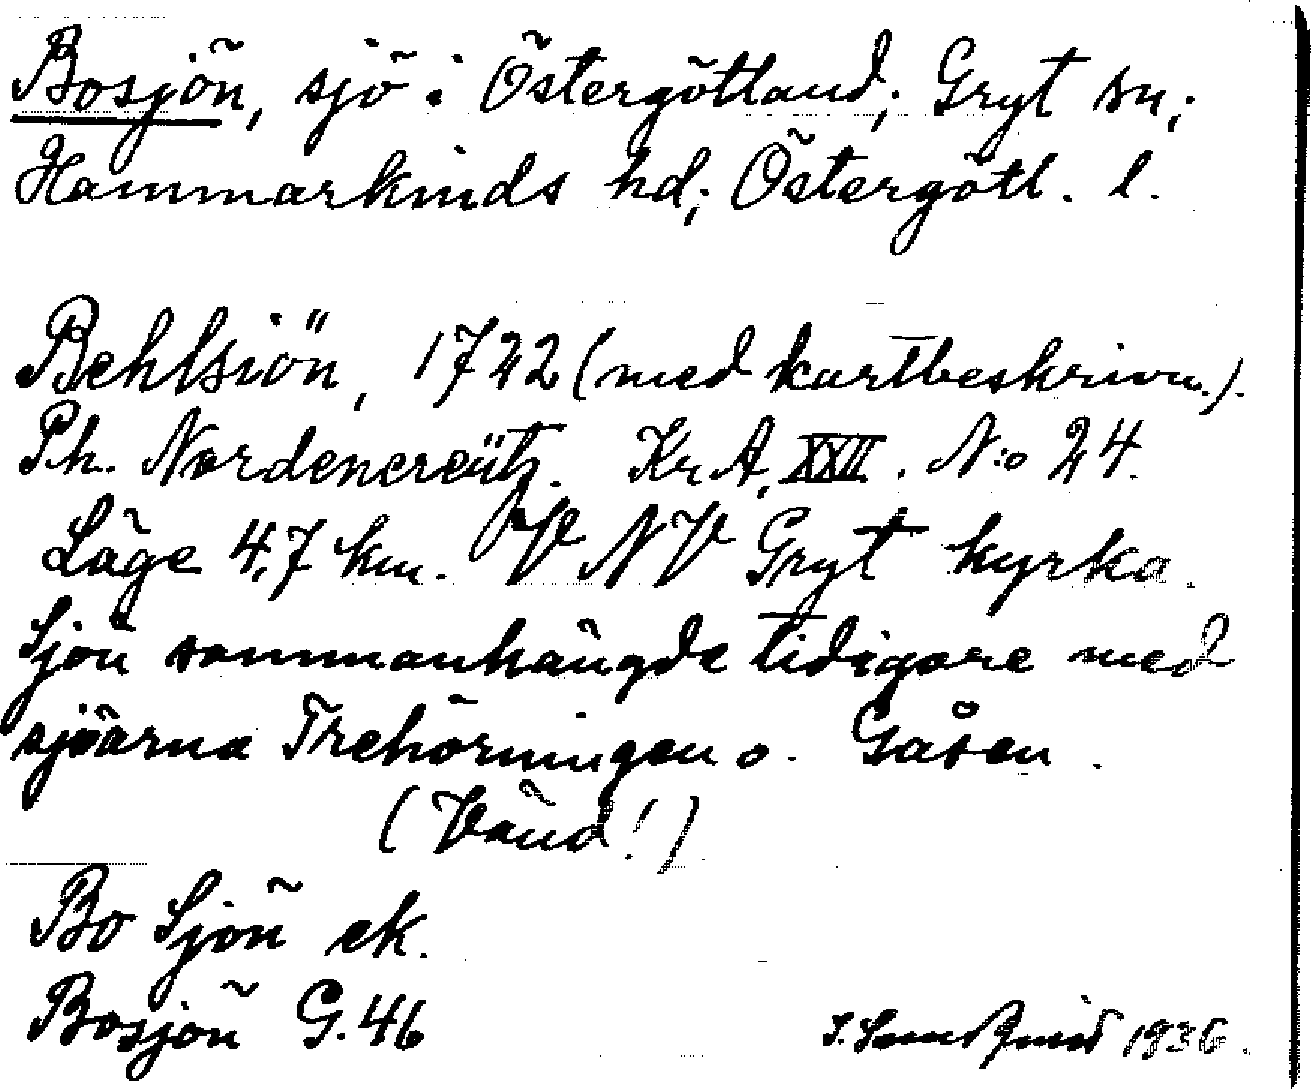 Bosjön, sjö i Östergötland; Gryt sn;
Hammarkinds hd; Östergötl. l.
Behlsiön, 1722 (med kartbeskrivn.).
Ph. Nordencreütz. Kr. A. XXII. N:o 24.
Läge 4,7 km. V NV Gryt kyrka.
Sjön sammanhängde tidigare med
sjöarna Trehörningen o. Gåsen.
(Vänd!)
Bo Sjön ek.
Bosjön G. 46
1936.